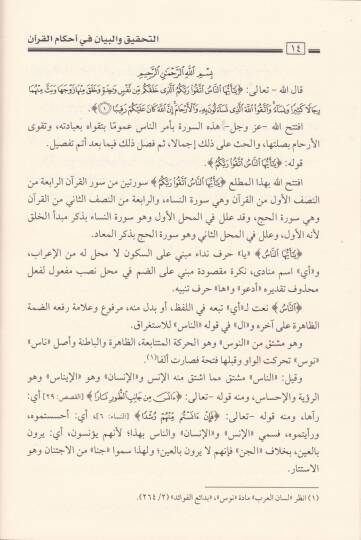 التحقيق والبيان في أحكام القرآن
١٤
بِسْمِ اللَّهِ الرَّحْمَنِ الرَّحِيمِ
قال الله - تعالى: ﴿يَا أَيُّهَا النَّاسُ اتَّقُوا رَبَّكُمُ الَّذِي خَلَقَكُمْ مِنْ نَفْسٍ وَاحِدَةٍ وَخَلَقَ مِنْهَا زَوْجَهَا وَبَثَّ مِنْهُمَا
رِجَالًا كَثِيرًا وَنِسَاءً وَاتَّقُوا اللَّهَ الَّذِي تَسَاءَلُونَ بِهِ وَالْأَرْحَامَ إِنَّ اللَّهَ كَانَ عَلَيْكُمْ رَقِيبًا (١)﴾.
افتتح الله -عز وجل- هذه السورة بأمر الناس عمومًا بتقواه بعبادته، وتقوى
الأرحام بصلتها، والحث على ذلك إجمالا، ثم فصل ذلك فيما بعد أتم تفصيل.
قوله: ﴿يَا أَيُّهَا النَّاسُ اتَّقُوا رَبَّكُمُ﴾.
افتتح الله بهذا المطلع ﴿يَا أَيُّهَا النَّاسُ اتَّقُوا رَبَّكُمُ﴾ سورتين من سور القرآن الرابعة من
النصف الأول من القرآن وهي سورة النساء، والرابعة من النصف الثاني من القرآن
وهي سورة الحج، وقد علل في المحل الأول وهو سورة النساء بذكر مبدأ الخلق
لأنه الأول، وعلل في المحل الثاني وهو سورة الحج بذكر المعاد.
﴿يَا أَيُّهَا النَّاسُ﴾ «يا» حرف نداء مبني على السكون لا محل له من الإعراب،
و«أي» اسم منادى، نكرة مقصودة مبني على الضم في محل نصب مفعول لفعل
محذوف تقديره «أدعو» و«ها» حرف تنبيه.
﴿النَّاسُ﴾ نعت لـ«أي» تبعه في اللفظ، أو بدل منه، مرفوع وعلامة رفعه الضمة
الظاهرة على آخره و«ال» في قوله «الناس» للاستغراق.
وهو مشتق من «النوس» وهو الحركة المتتابعة، الظاهرة والباطنة وأصل «ناس»
«نوس» تحركت الواو وقبلها فتحة فصارت ألفا(١).
وقيل: «الناس» مشتق مما اشتق منه الإنس و«الإنسان» وهو «الإيناس» وهو
الرؤية والإحساس، ومنه قوله -تعالى: ﴿ءَانَسَ مِنْ جَانِبِ الطُّورِ نَارًا﴾ [القصص: ٢٩] أي:
رآها، ومنه قوله -تعالى: ﴿فَإِنْ ءَانَسْتُمْ مِنْهُمْ رُشْدًا﴾ [النساء: ٦]، أي: أحسستموه،
ورأيتموه، فسمي «الإنس» و«الإنسان» والناس بهذا؛ لأنهم يؤنسون، أي: يرون
بالعين، بخلاف «الجن» فإنهم لا يرون بالعين؛ ولهذا سموا «جنا» من الاجتنان وهو
الاستتار.
(١) انظر «لسان العرب» مادة «نوس»، «بدائع الفوائد» (٢/ ٢٦٤).